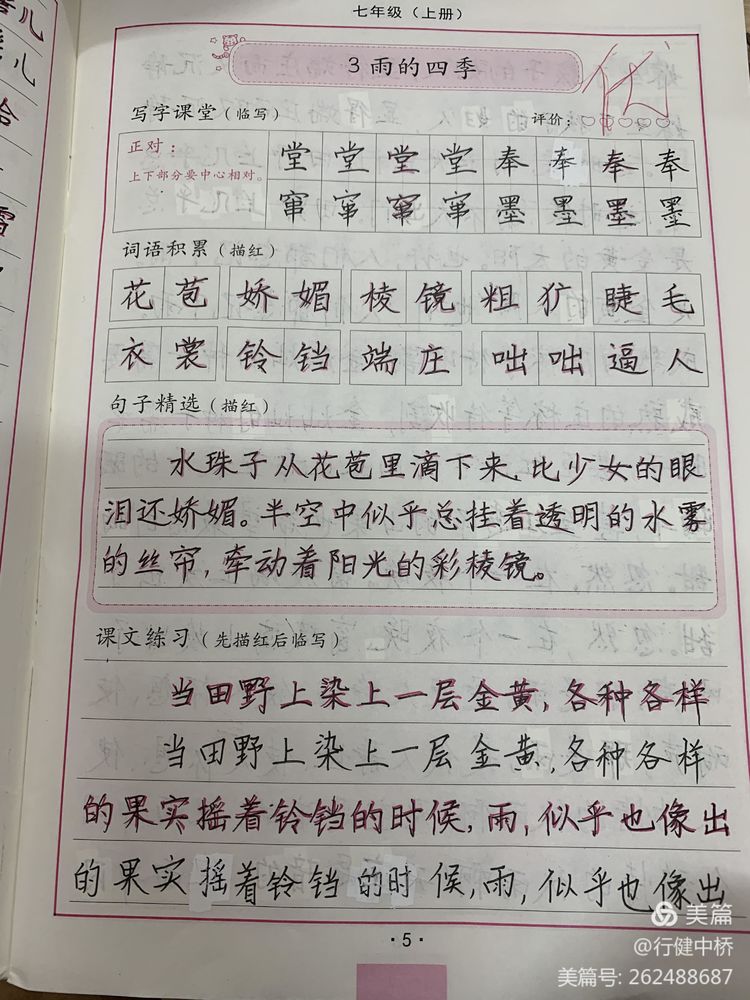 七年级（上册）
3 雨的四季
优
写字课堂（临写） 评价：
正对： 堂 堂 堂 堂 奉 奉 奉 奉
上下部分要中心相对。
窜 窜 窜 窜 墨 墨 墨 墨
词语积累（描红）
花苞 娇媚 棱镜 粗犷 睫毛
衣裳 铃铛 端庄 咄咄逼人
句子精选（描红）
水珠子从花苞里滴下来，比少女的眼
泪还娇媚。半空中似乎总挂着透明的水雾
的丝帘，牵动着阳光的彩棱镜。
课文练习（先描红后临写）
当田野上染上一层金黄，各种各样
当田野上染上一层金黄，各种各样
的果实摇着铃铛的时候，雨，似乎也像出
的果实摇着铃铛的时候，雨，似乎也像出
·5·
美篇
@行健中桥
美篇号: 262488687